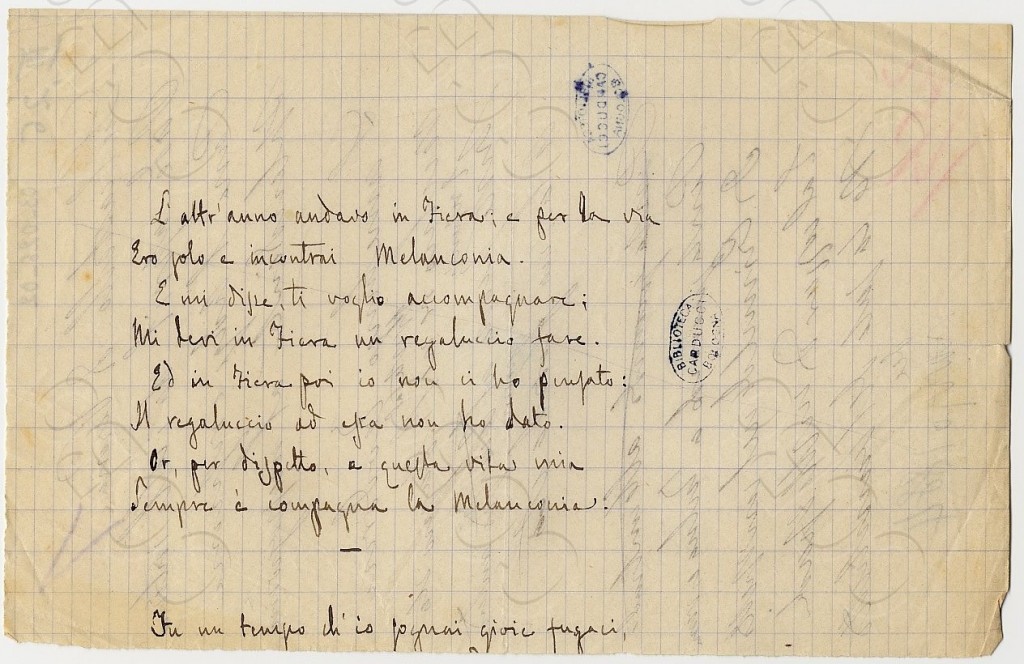 BIBLIOTECA
CARDUCCI
BOLOGNA
L'altr'anno andavo in Fiera; e per la via
Ero solo e incontrai Melanconia.
E mi disse, ti voglio accompagnare;
Mi devi in Fiera un regaluccio fare.
BIBLIOTECA
CARDUCCI
BOLOGNA
Ed in Fiera poi io non ci ho pensato:
Il regaluccio ad essa non ho dato.
Or, per dispetto, a questa vita mia
Sempre è compagna la Melanconia.
Fu un tempo ch'io sognai gioie fugaci,